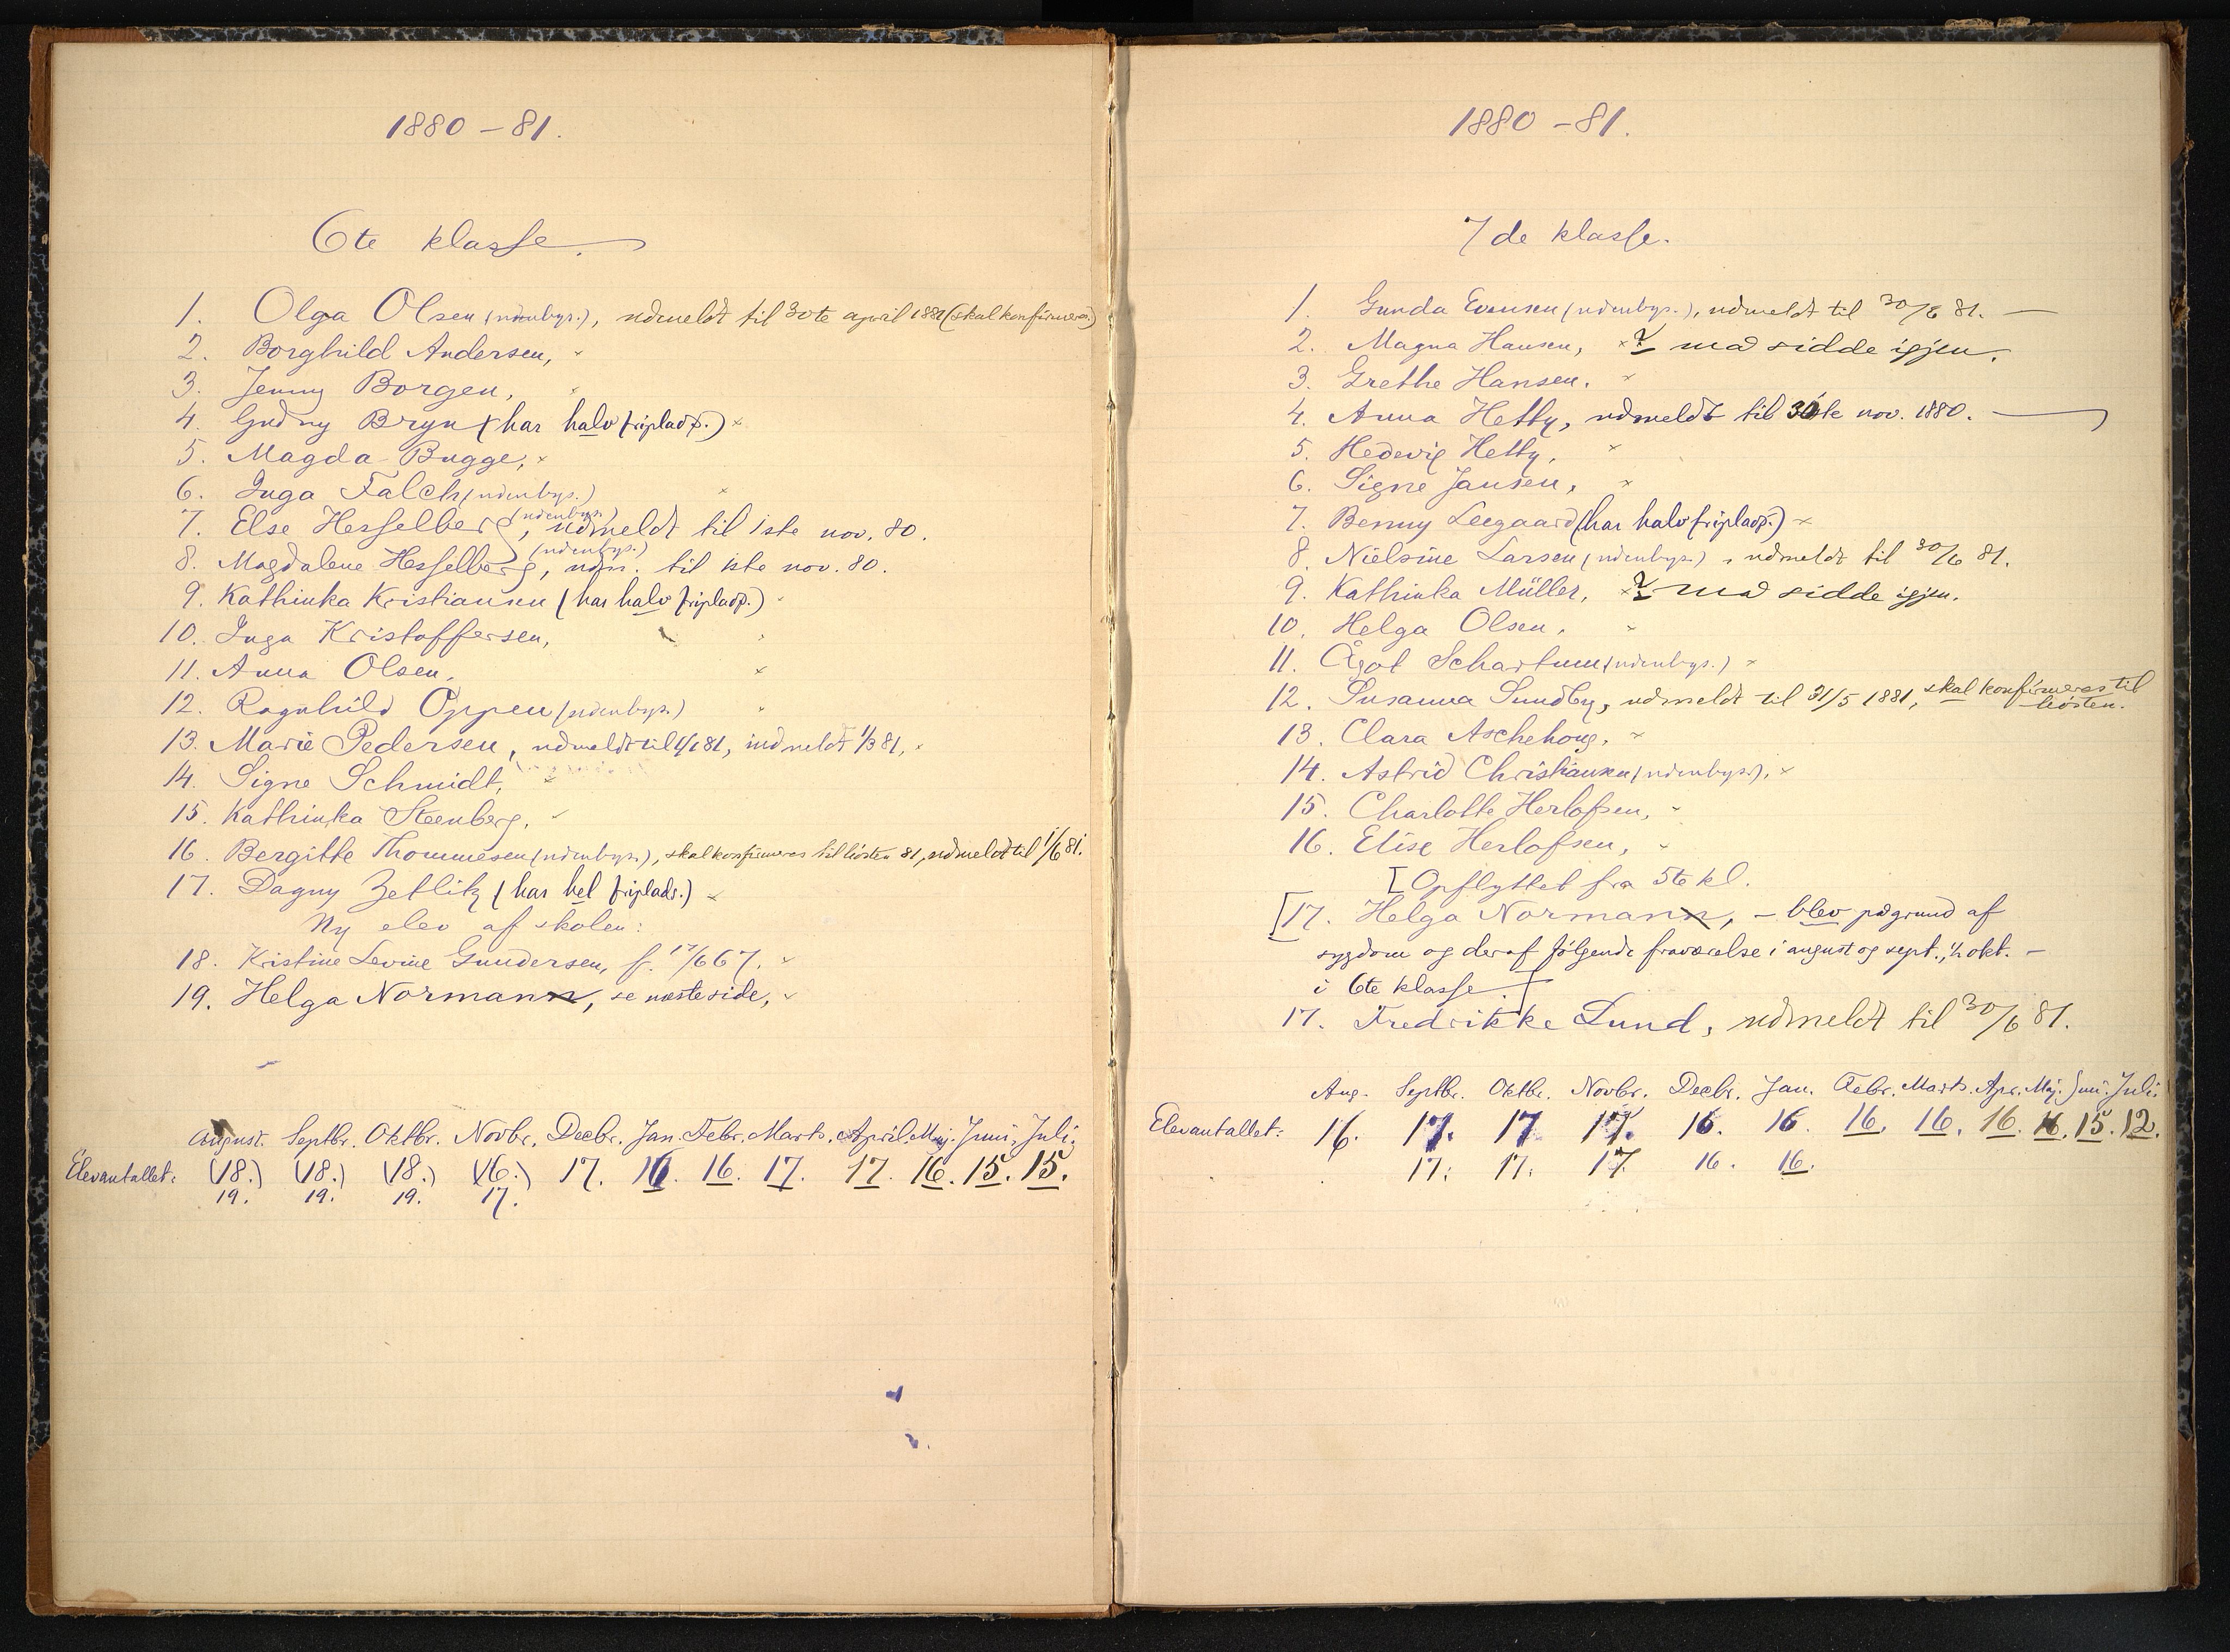 1880 – 81.
6te klasse.
1. Olga Olsen (udenbys.), udmeldt til 30te april 1881 (skal konfirmeres)
2. Borghild Andersen, ×
3. Jenny Borgen, ×
4. Gudny Bryn (har halv friplads.) ×
5. Magda Bugge, ×
6. Inga Falch (udenbys.) ×
7. Else Hesselberg (udenbys.), udmeldt til 1ste nov. 80.
8. Magdalene Hesselberg (udenbys.), udm. til 1ste nov. 80.
9. Kathinka Kristiansen (har halv friplads.) ×
10. Inga Kristoffersen, ×
11. Anna Olsen, ×
12. Ragnhild Oppen (udenbys.) ×
13. Marie Pedersen, udmeldt til 1/1 81, indmeldt 1/3 81, ×
14. Signe Schmidt, ×
15. Kathinka Steenberg, ×
16. Bergitte Thommesen (udenbys.), skal konfirmeres til hösten 81, udmeldt til 1/6 81.
17. Dagny Zetlitz (har hel friplads.) ×
Ny elev af skolen:
18. Kristine Levine Gundersen, f. 17/6 67, ×
19. Helga Normann, se næste side, ×
August. Septbr. Oktbr. Novbr. Decbr. Jan. Febr. Marts. April. Maj. Juni. Juli.
Elevantallet: (18.) (18.) (18.) (16.) 17. 16. 16. 17. 17. 16. 15. 15.
19. 19. 19. 17.
1880 – 81.
7de klasse.
1. Gunda Evensen (udenbys.), udmeldt til 30/6 81. —
2. Magna Hansen, × må sidde igjen.
3. Grethe Hansen. ×
4. Anna Hetty, udmeldt til 30te nov. 1880. —
5. Hedevig Hetty, ×
6. Signe Jansen, ×
7. Benny Leegaard (har halv friplads.) ×
8. Nielsine Larsen (udenbys.), udmeldt til 30/6 81.
9. Kathinka Müller, × må sidde igjen.
10. Helga Olsen, ×
11. Ågot Schartum (udenbys.) ×
12. Susanna Sundby, udmeldt til 31/5 1881, skal konfirmeres til
hösten.
13. Clara Aschehoug, ×
14. Astrid Christiansen (udenbys.), ×
15. Charlotte Herlofsen, ×
16. Elise Herlofsen, ×
[Opflyttet fra 5te kl.
[17. Helga Normann, – blev på grund af
sygdom og deraf følgende fraværelse i august og sept., ½ okt. –
i 6te klasse.]
17. Fredrikke Lund, udmeldt til 30/6 81.
Aug. Septbr. Oktbr. Novbr. Decbr. Jan. Febr. Marts. Apr. Maj. Juni. Juli.
Elevantallet: 16. 17. 17 17. 16. 16. 16. 16. 16. 16. 15. 12.
17. 17. 17. 16. 16.